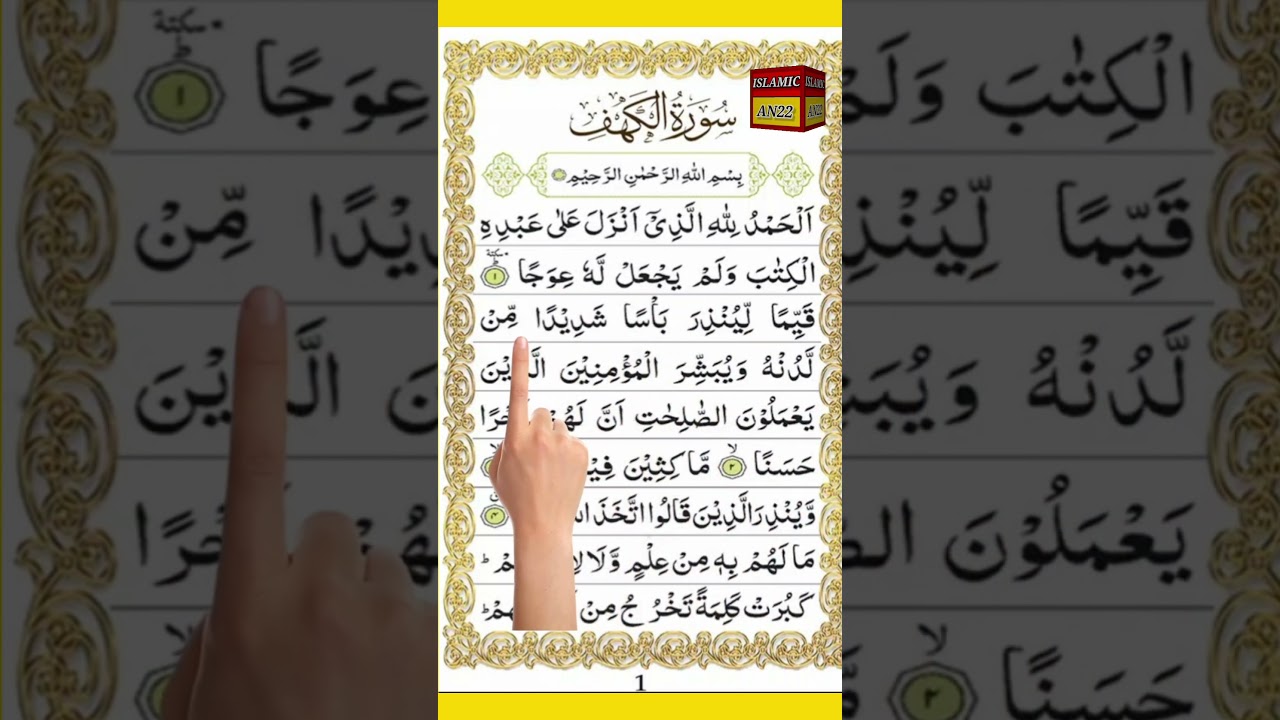 سُوْرَةُ الْكَهْفِ
ISLAMIC
AN22
ISLAMIC
AN22
بِسْمِ اللهِ الرَّحْمٰنِ الرَّحِيْمِ
اَلْحَمْدُ لِلّٰهِ الَّذِيْٓ اَنْزَلَ عَلٰى عَبْدِهِ
الْكِتٰبَ وَلَمْ يَجْعَلْ لَّهٗ عِوَجًا ۜ ١
قَيِّمًا لِّيُنْذِرَ بَاْسًا شَدِيْدًا مِّنْ
لَّدُنْهُ وَيُبَشِّرَ الْمُؤْمِنِيْنَ
يَعْمَلُوْنَ الصّٰلِحٰتِ اَنَّ
حَسَنًا ٢ مَّاكِثِيْنَ
وَّيُنْذِرَ الَّذِيْنَ قَالُوا اتَّخَذَ ٤
مَا لَهُمْ بِهٖ مِنْ عِلْمٍ وَّلَا
كَبُرَتْ كَلِمَةً تَخْرُجُ مِنْ
1